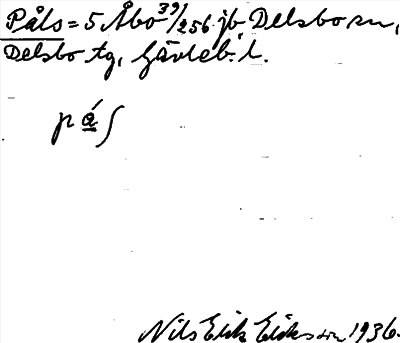 Påls = 5 Åbo 39/256 jb, Delsbo sn,
Delsbo tg, Gävleb. l.
pá̱ʃ
Nils Erik Eriksson 1936.